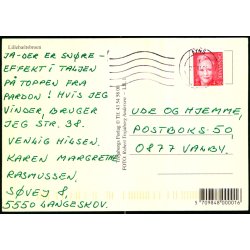 Lillebæltsbroen
JA-DER ER SNØRE-
EFFEKT I TALJEN
PÅ TOPPEN FRA
PARDON! HVIS JEG
VINDER, BRUGER
JEG STR. 38.
VENLIG HILSEN.
KAREN MARGRETHE
RASMUSSEN.
SØVEJ 8,
5550 LANGESKOV.
UDE OG HJEMME,
POSTBOKS 50,
0877 VALBY.
5"709848"000016"